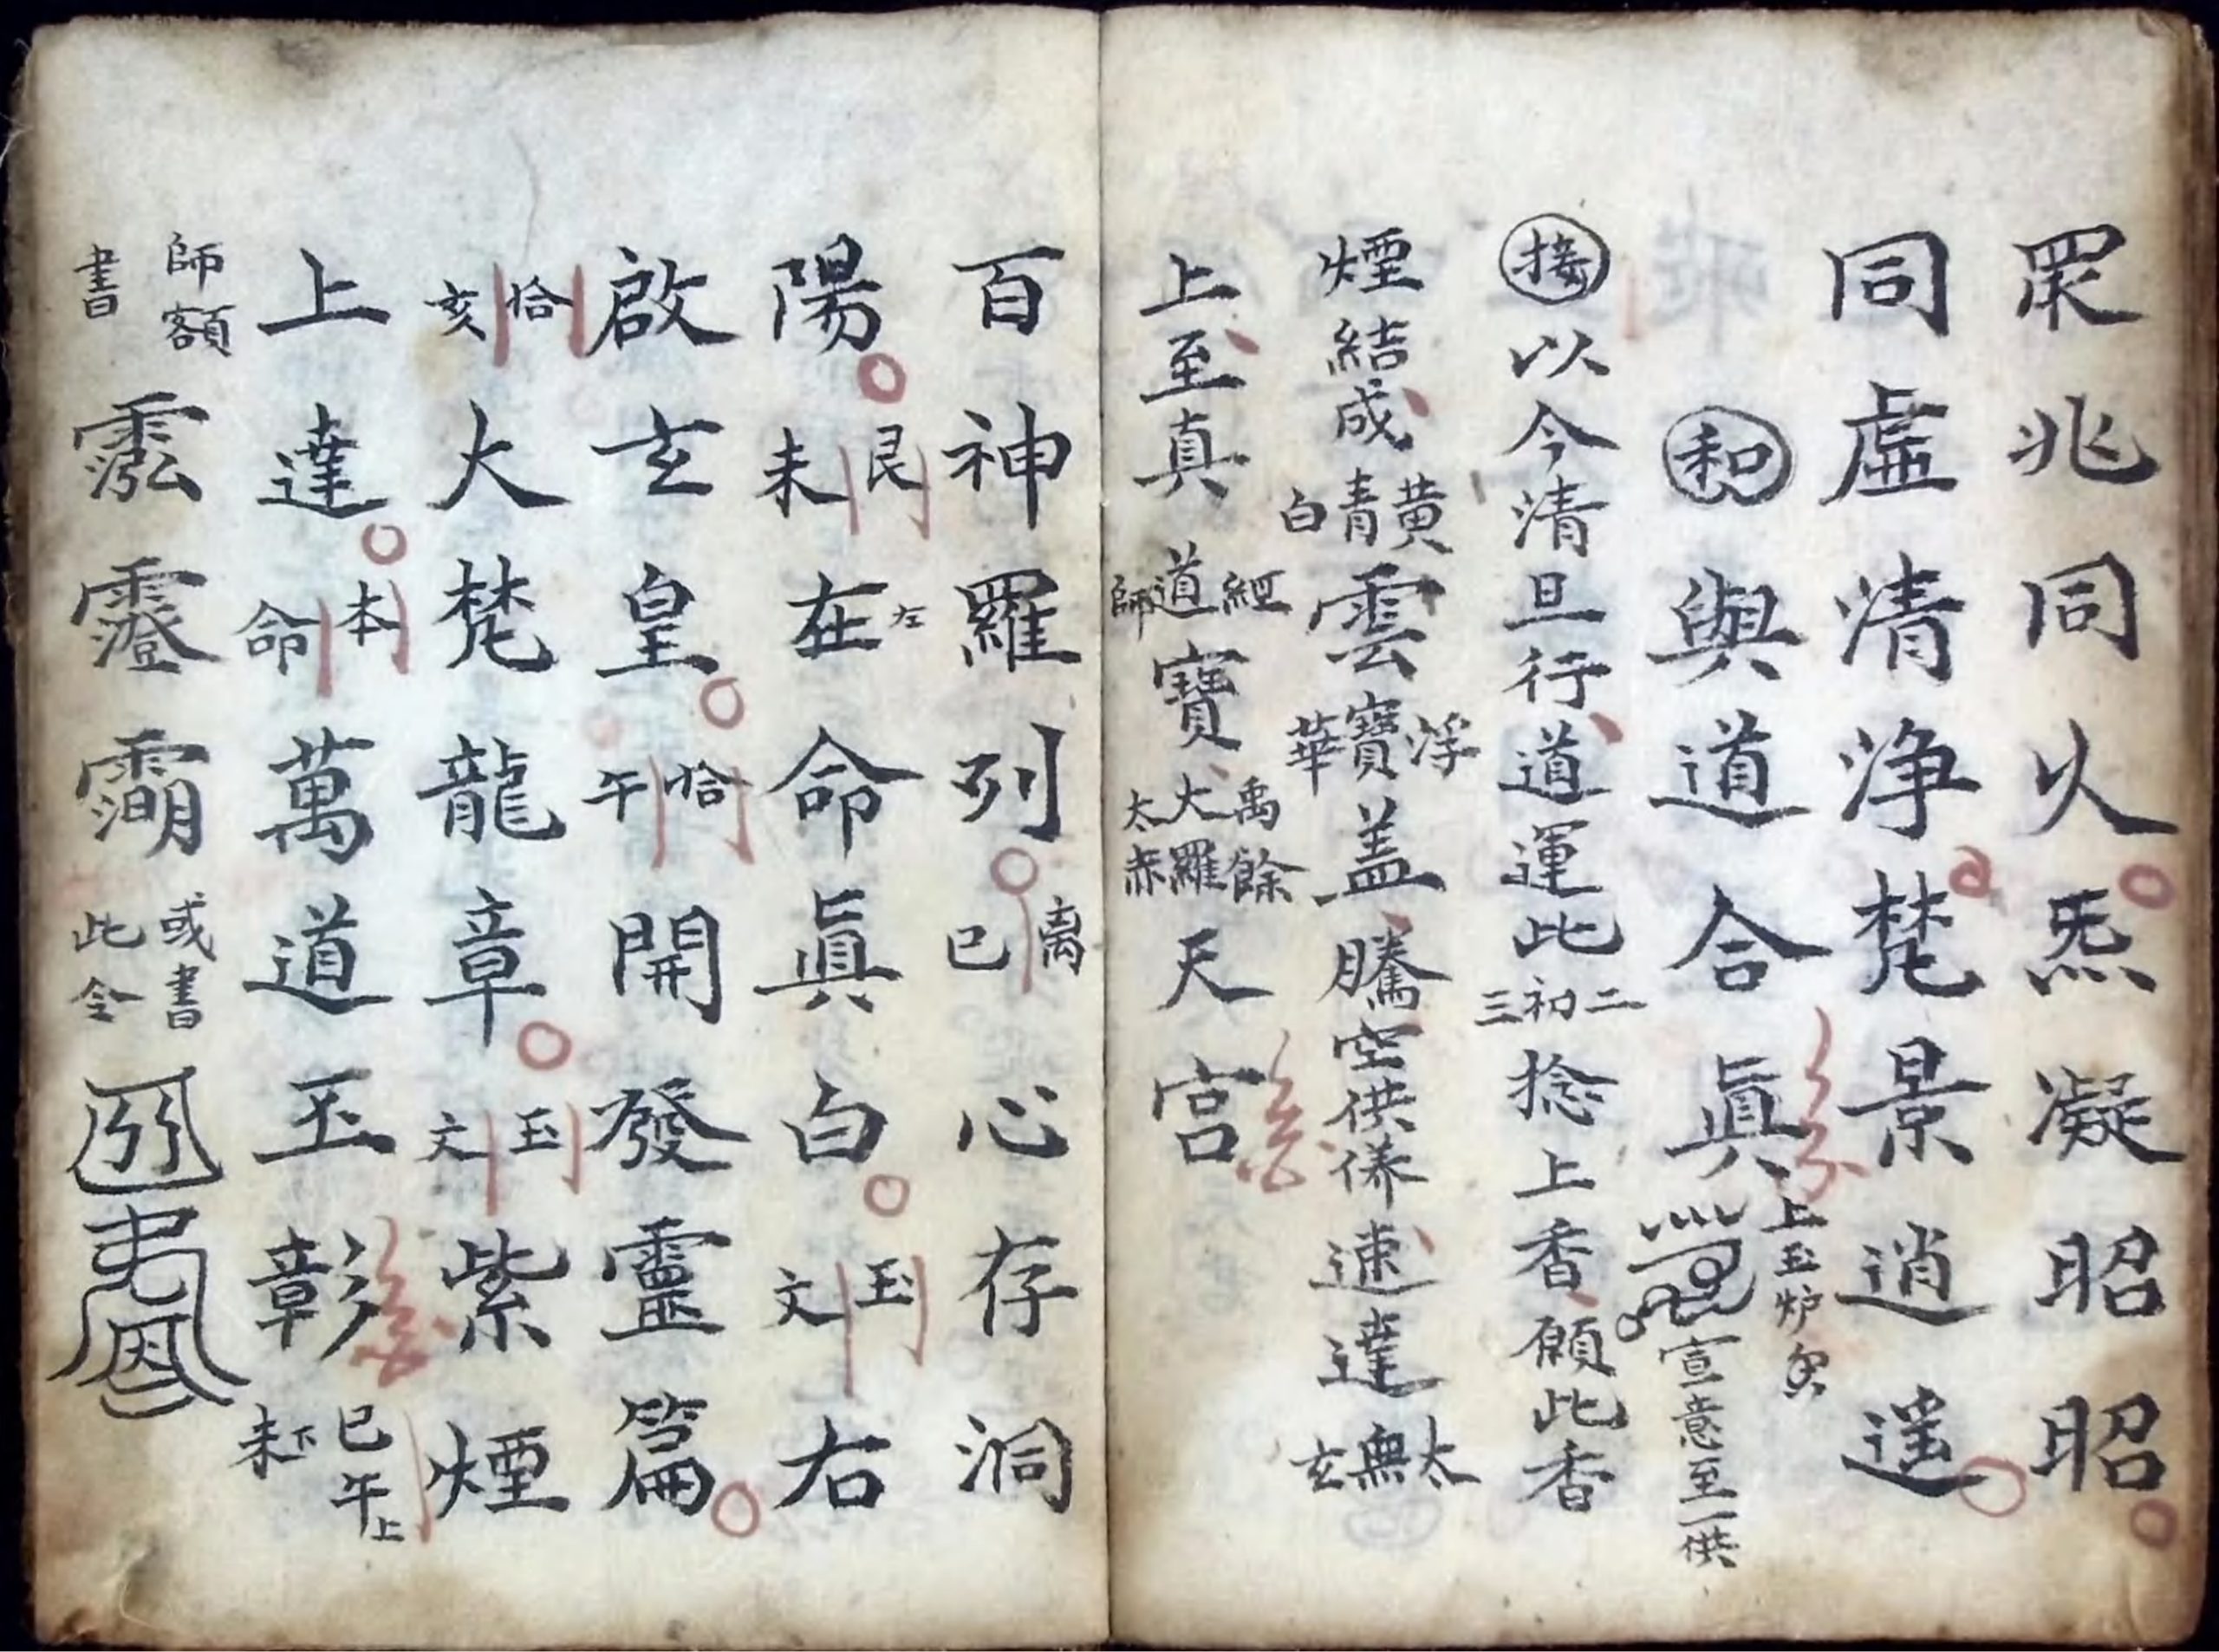 眔兆同火炁凝昭昭
同虛清淨梵景逍遥
和 與道合眞 上玉炉香 宣意至一供
接 以今清旦行道運此二初三捻上香願此香
煙結成黃青白雲浮寶華盖騰空供養速達太無玄
上至真經道師寶禹餘大羅太赤天宫
百神羅列離巳心存洞
陽艮未在左命眞白玉文右
啟玄皇恰午開發靈篇
恰亥大梵龍章玉文紫煙
上達本命萬道玉彰巳午上未下
師額書 或書此令